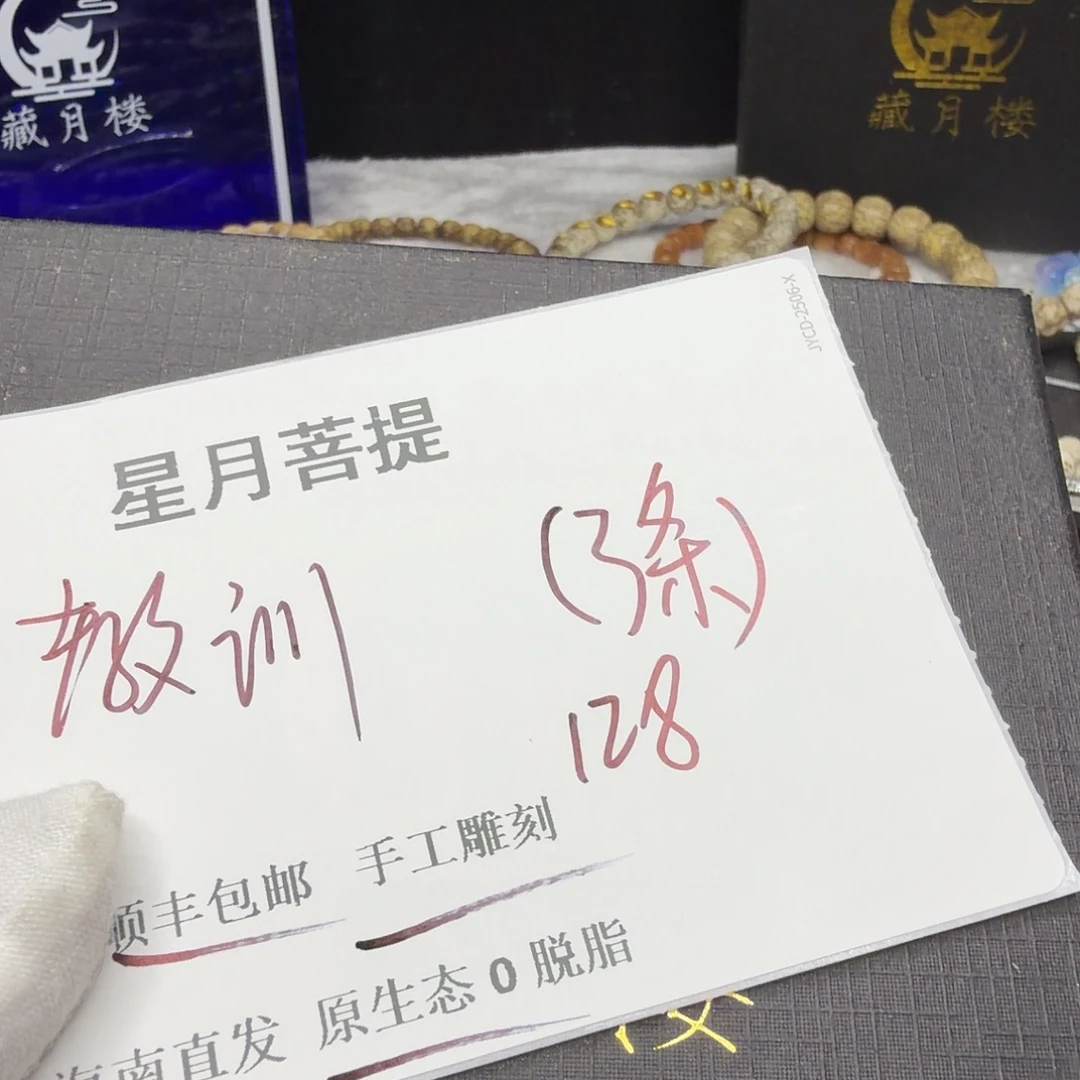 藏月楼
藏月楼
JYCD-2506-X
星月菩提
教训
(3条)
128
顺丰包邮 手工雕刻
海南直发 原生态0脱脂